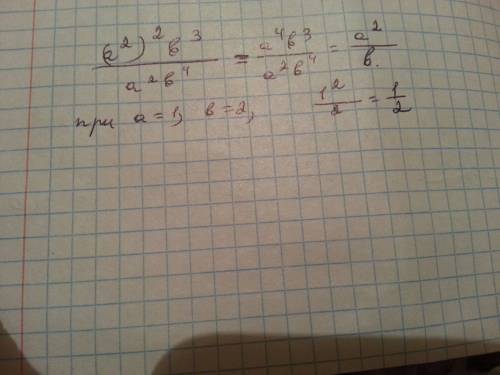 (a²)² b³ / a² b⁴ = a⁴b³ / a²b⁴ = a² / b.
при a = 1, b = 2, 1² / 2 = 1 / 2